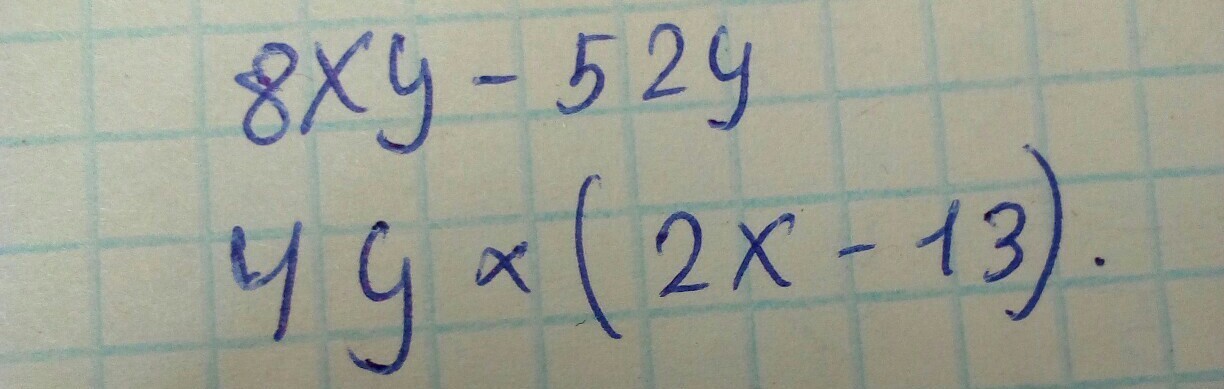 8xy - 52y
4y × (2x - 13).